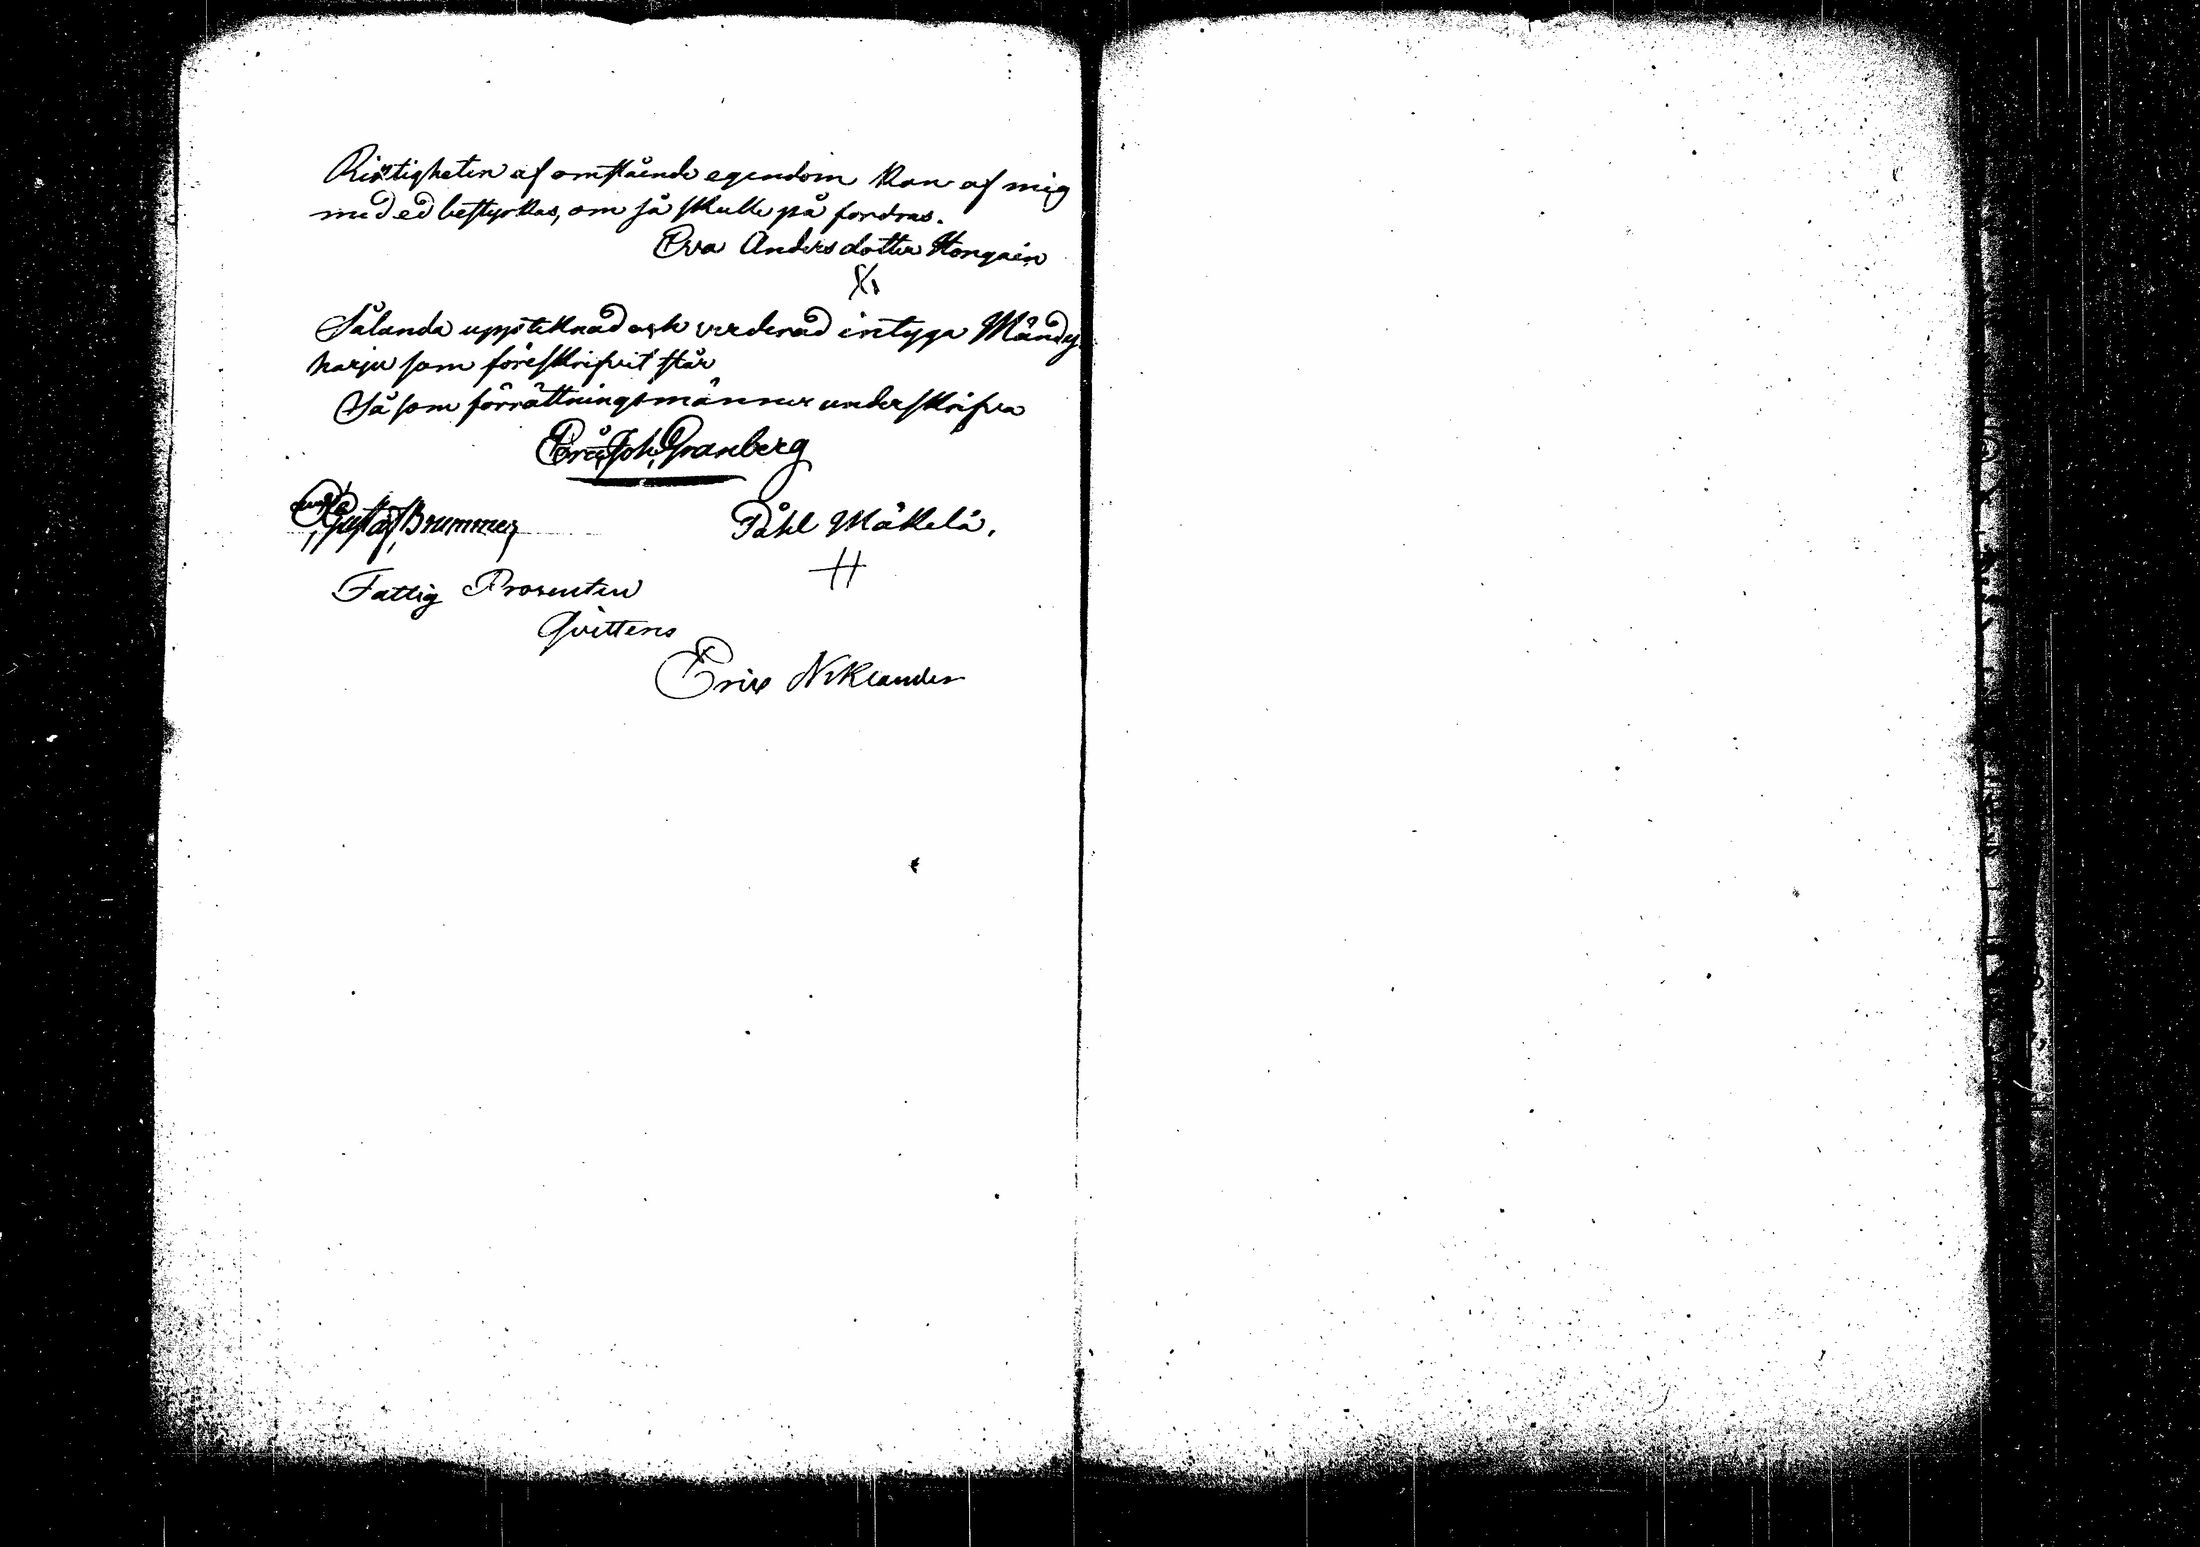 Riktigheten af omstående egendom kan af mig
med ed bestyrkas, om så skulle på fordras.
Eva Andersdotter Kongain
Sålunda uppteknad och verderad intyga Mändy
harju som föreskrifvit står
Så som förrättningsmänner underskrifva
Joh, Granberg
Gustaf Brummer Påhl Mäkelä.
Fattig Prosenten
Qvitteras
Eric Niklander